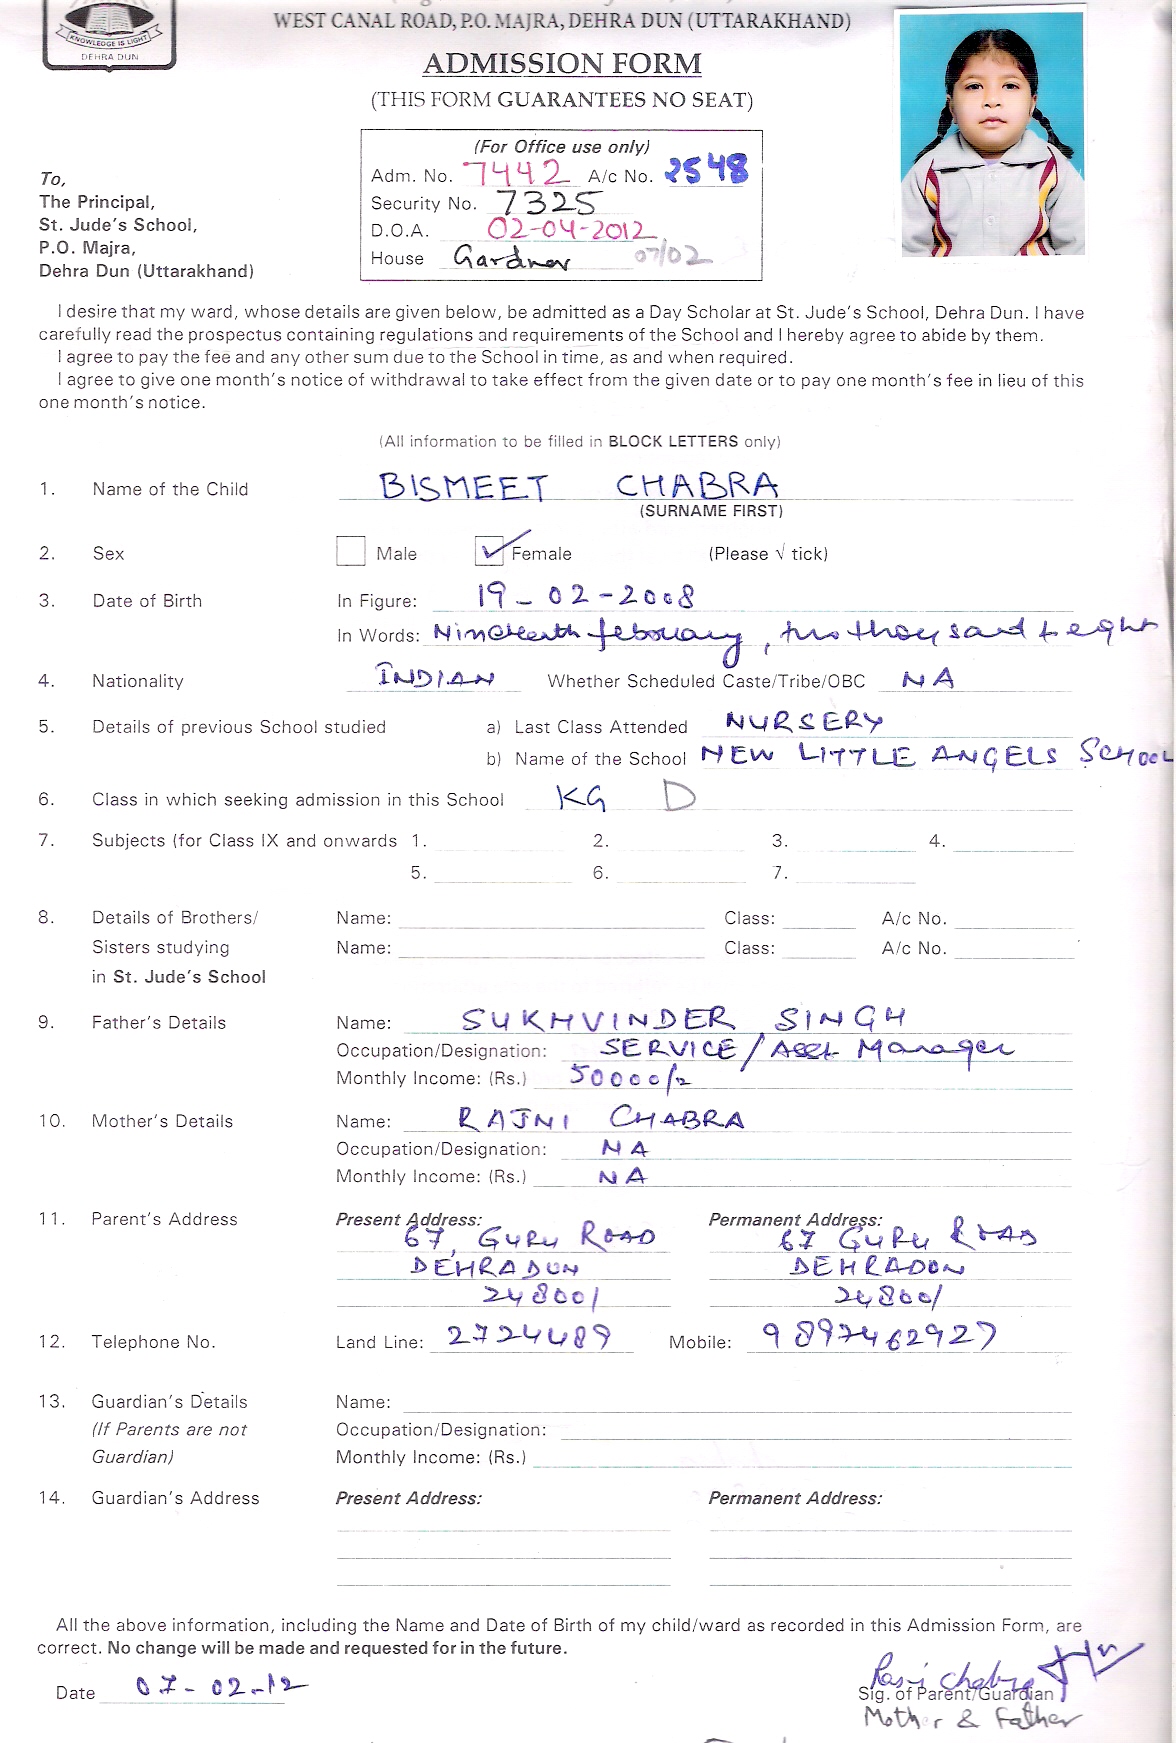 KNOWLEDGE IS LIGHT
DEHRA DUN
WEST CANAL ROAD, P.O. MAJRA, DEHRA DUN (UTTARAKHAND)
ADMISSION FORM
(THIS FORM GUARANTEES NO SEAT)
(For Office use only)
Adm. No. 7442 A/c No. 2548
Security No. 7325
D.O.A. 02-04-2012
House Gardner 07/02
To,
The Principal,
St. Jude's School,
P.O. Majra,
Dehra Dun (Uttarakhand)
I desire that my ward, whose details are given below, be admitted as a Day Scholar at St. Jude's School, Dehra Dun. I have
carefully read the prospectus containing regulations and requirements of the School and I hereby agree to abide by them.
I agree to pay the fee and any other sum due to the School in time, as and when required.
I agree to give one month's notice of withdrawal to take effect from the given date or to pay one month's fee in lieu of this
one month's notice.
(All information to be filled in BLOCK LETTERS only)
1. Name of the Child BISMEET CHABRA
(SURNAME FIRST)
2. Sex Male Female (Please √ tick)
3. Date of Birth In Figure: 19-02-2008
In Words: Nineteenth february, two thousand & eight
4. Nationality INDIAN Whether Scheduled Caste/Tribe/OBC NA
5. Details of previous School studied a) Last Class Attended NURSERY
b) Name of the School NEW LITTLE ANGELS SCHOOL
6. Class in which seeking admission in this School KG D
7. Subjects (for Class IX and onwards 1. 2. 3. 4.
5. 6. 7.
8. Details of Brothers/ Name: Class: A/c No.
Sisters studying Name: Class: A/c No.
in St. Jude's School
9. Father's Details Name: SUKHVINDER SINGH
Occupation/Designation: SERVICE/Asst. Manager
Monthly Income: (Rs.) 50000/-
10. Mother's Details Name: RAJNI CHABRA
Occupation/Designation: NA
Monthly Income: (Rs.) NA
11. Parent's Address Present Address: Permanent Address:
67, GURU ROAD 67 GURU ROAD
DEHRADUN DEHRADUN
248001 248001
12. Telephone No. Land Line: 2724489 Mobile: 9897462927
13. Guardian's Details Name:
(If Parents are not Occupation/Designation:
Guardian) Monthly Income: (Rs.)
14. Guardian's Address Present Address: Permanent Address:
All the above information, including the Name and Date of Birth of my child/ward as recorded in this Admission Form, are
correct. No change will be made and requested for in the future.
Date 07-02-12 Rajni Chabra
Sig. of Parent/Guardian
Mother & Father